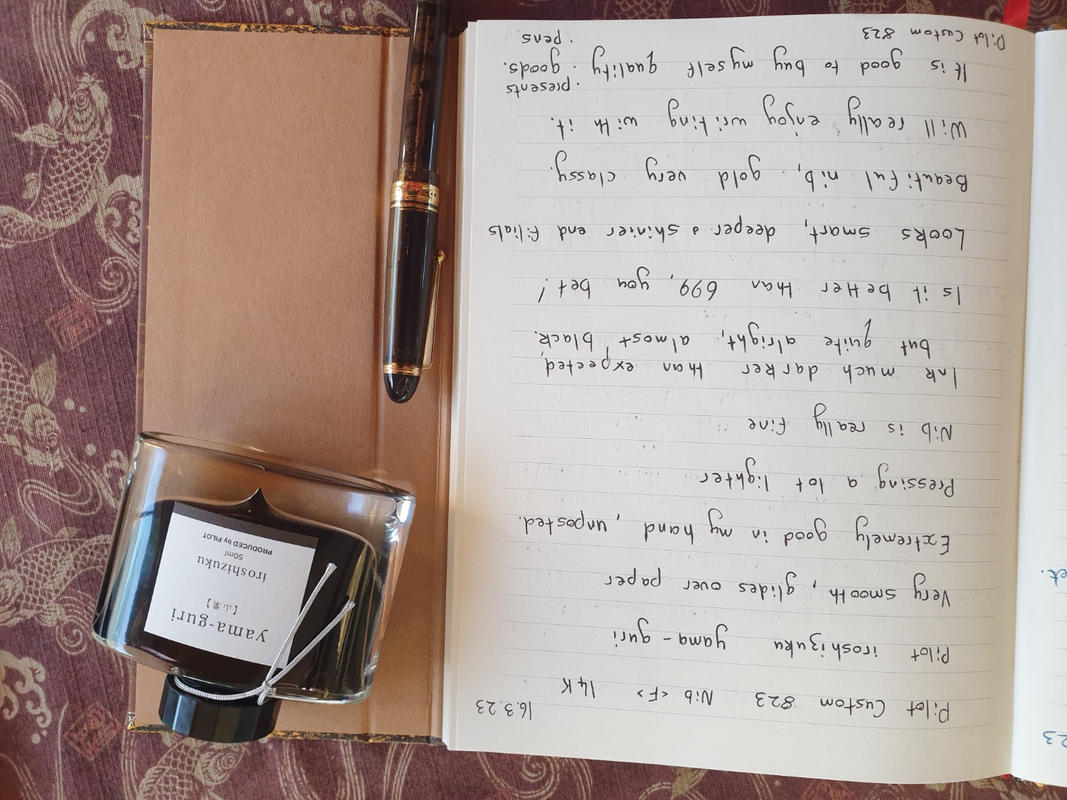 16.3.23
Pilot Custom 823 Nib <F> 14K
Pilot iroshizuku yama-guri
Very smooth, glides over paper
Extremely good in my hand, unposted.
Pressing a lot lighter
Nib is really fine
Ink much darker than expected,
but quite alright, almost black.
Is it better than 699, you bet!
Looks smart, deeper & shinier end filials
Beautiful nib, gold very classy.
Will really enjoy writing with it.
· presents
It is good to buy myself quality · goods.
· pens
Pilot Custom 823
yama-guri
【山栗】
iroshizuku
50ml
PRODUCED by PILOT
23
et.